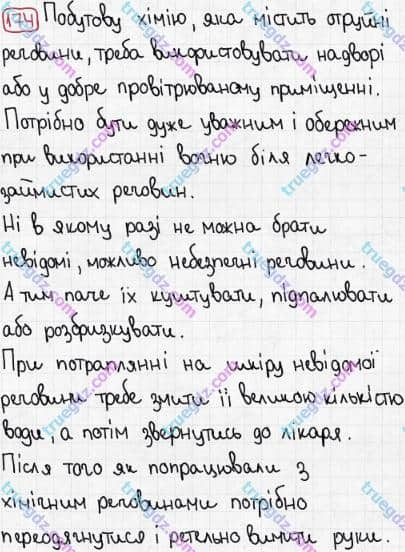 174 Побутову хімію, яка містить отруйні
речовини, треба використовувати надворі
або у добре провітрюваному приміщенні.
Потрібно бути дуже уважним і обережним
при використанні вогню біля легко-
займистих речовин.
Ні в якому разі не можна брати
невідомі, можливо небезпечні речовини.
А тим паче їх куштувати, підпалювати
або розбризкувати.
При потраплянні на шкіру невідомої
речовини требе змити її великою кількістю
води, а потім звернутись до лікаря.
Після того як попрацювали з
хімічним речовинами потрібно
переодягнутися і ретельно вимити руки.
truegdz.com
truegdz.com
truegdz.com
truegdz.com
truegdz.com
truegdz.com
truegdz.com
truegdz.com
truegdz.com